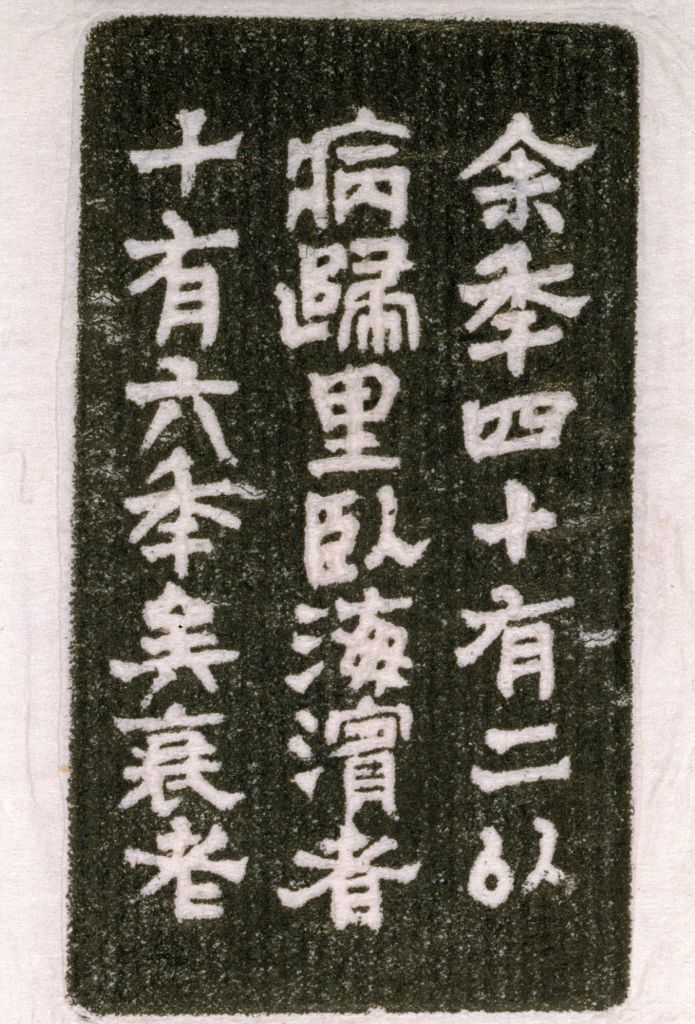 余年四十有二以
病歸里臥海濱者
十有六年矣衰老